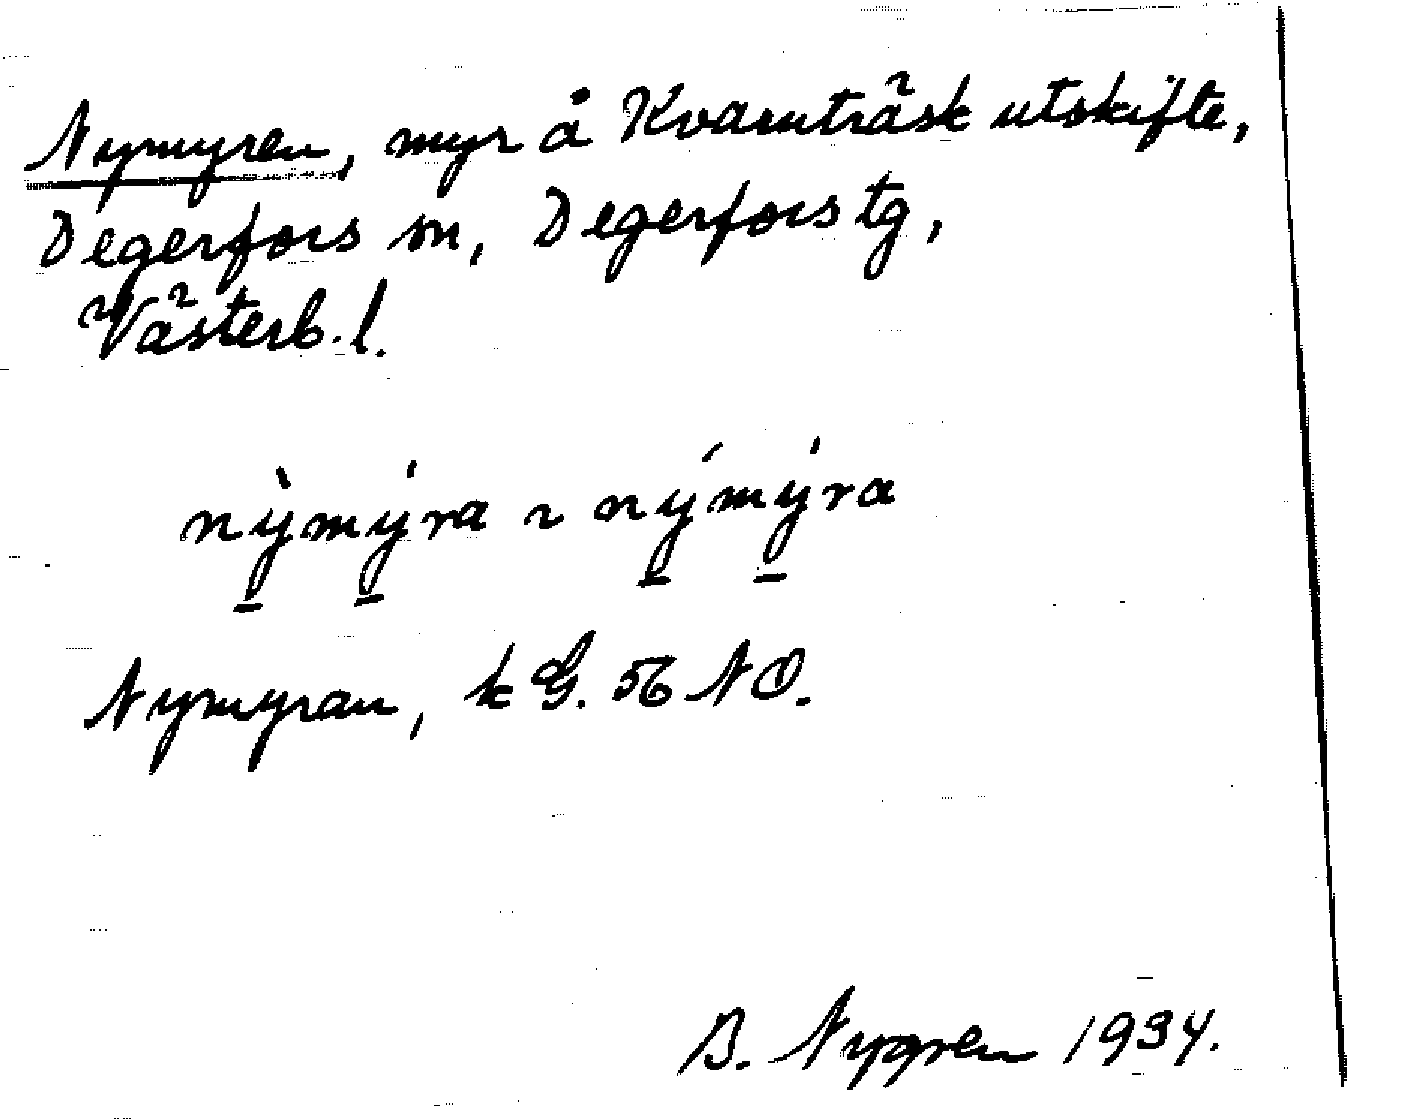 Nymyren, myr å Kvarnträsk utskifte,
Degerfors sn, Degerfors tg,
Västerb. l.
nỳmýra ~ nýmýra
Nymyran, k G. 56 NO.
B. Nygren 1934.